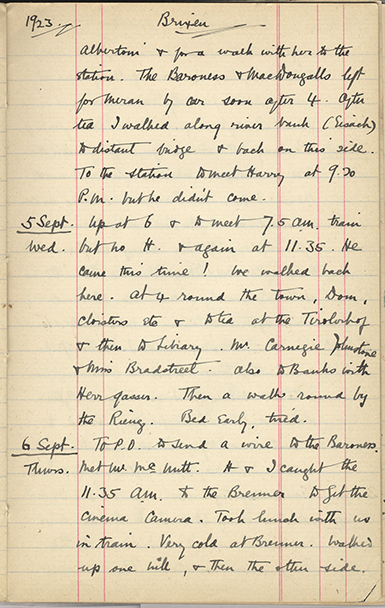 1923. Brixen
Albertoni & for a walk with her to the
station. The Baroness & MacDougalls left
for Meran by car soon after 4. After
tea I walked along river bank (Eisach)
to distant bridge & back on this side.
To the station to meet Harry at 9.30
P.M. but he didn't come.
5 Sept. Up at 6 & to meet 7.5 am. train
Wed. but no H. & again at 11.35. He
came this time! We walked back
here. At 4 round the town, Dom,
cloisters etc & to tea at the Tirolerhof
& then to Library. Mr. Carnegie Johnstone
& Mrs Bradstreet. Also to Banks with
Herr Gasser. Then a walk round by
the Rienz. Bed Early, tired.
6 Sept. To P.O. to send a wire to the Baroness.
Thurs. Met Mr Mc Nutt. H & I caught the
11.35 AM. to the Brenner to get the
Cinema Camera. Took lunch with us
in train. Very cold at Brenner. Walked
up one hill, & then the other side.